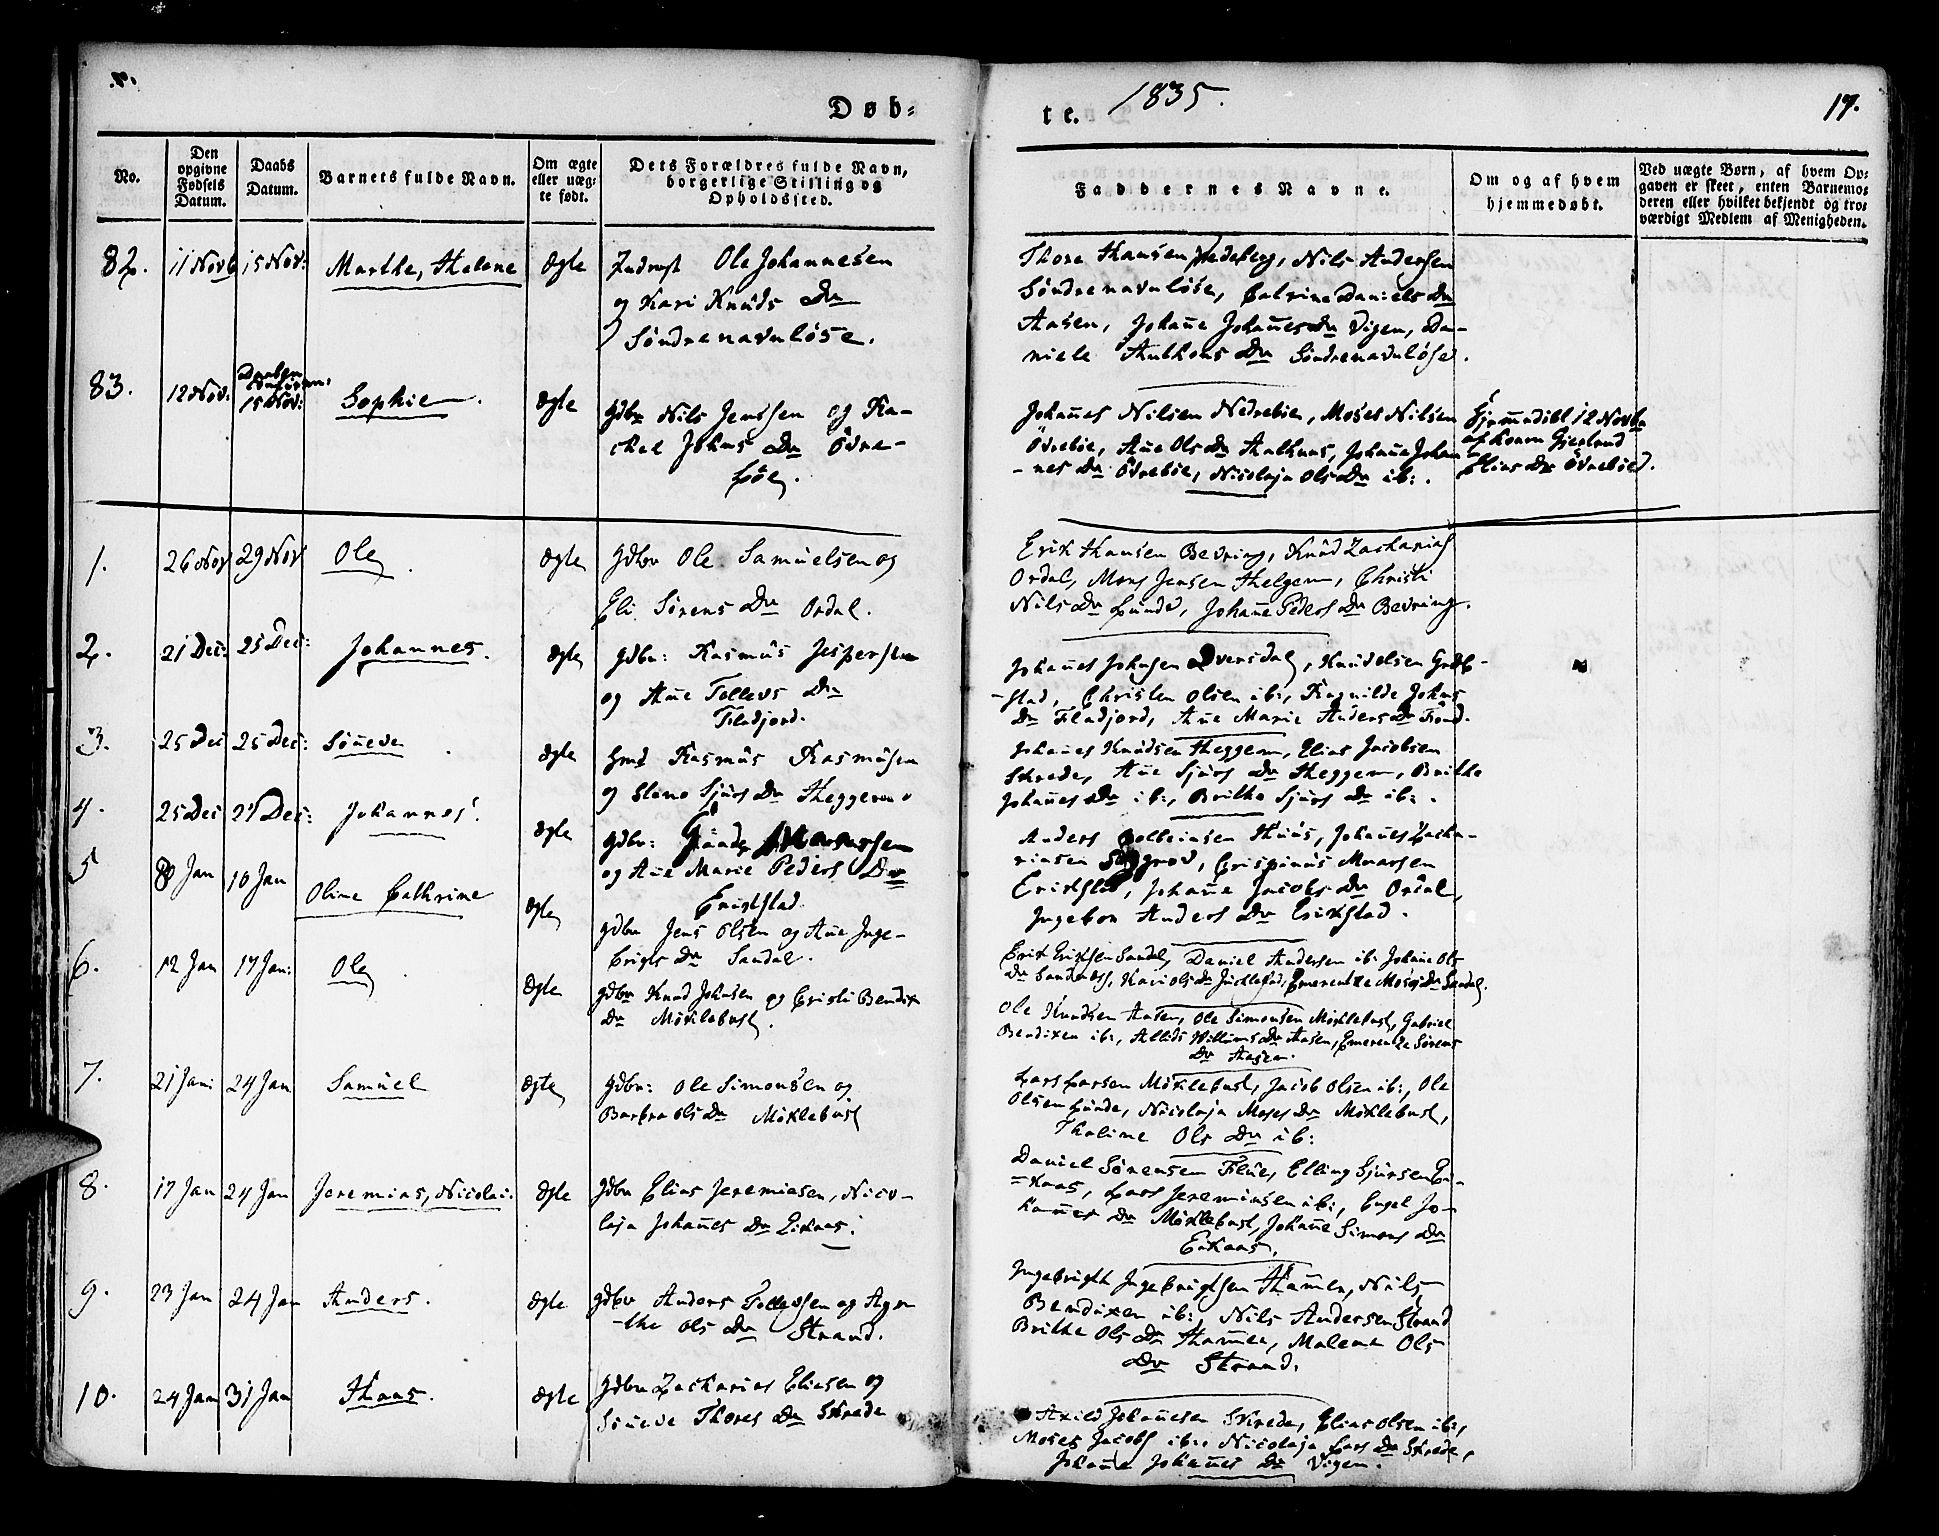 Døb-
te.
1835.
17.
No.
Den opgivne Fødsels Datum.
Daabs Datum.
Barnets fulde Navn.
Om ægte eller uægte født.
Dets Forældres fulde Navn, borgerlige Stilling og Opholdssted.
Faddernes Navne.
Om og af hvem hjemmedøbt.
Ved uægte Børn, af hvem Op-
gaven er skeet, enten Barnemo-
deren eller hvilket bekjendt og tro-
værdigt Medlem af Menigheden.
82. 11 Novb 15 Nov: Marthe, Helene Ægte Ole Johannesen
og Kari Knuds Dr
Søndrenavnløse.
Thore Hansen Nils Andersen
Søndrenavnløse, Catrine Daniels Dr
Aasen, Johañe Johañes Dr Vigen, Da-
niele Dr Søndrenavnløse.
83. 12 Nov: 15 Nov: Sophie. Ægte Gdbr Nils Jenssen og Ra-
chel Johns Dr Övre-
böe.
Johañes Nilsen Nedrebøe, Moses Nilsen
Övrebøe, Añe Ols Dr Johañe Johan
-nes Dr Övrebøe, Nicolaja Ols Dr ib:.
Hjemmedöbt 12 Novbr
af Konen
Elias Dr Övrebøe.
1. 26 Nov 29 Nov Ole. Ægte Gdbr Ole Samuelsen og
Eli Sörens Dr Ordal.
Erik Hansen Bevring, Knud Zacharias
Ordal, Mons Jensen Helgem, Christi
Nils Dr Lunde, Johañe Peders Dr Bevring.
2. 21 Dec: 25 Dec: Johannes. Ægte Gdbr: Rasmus Jespersen
og Añe Tollevs Dr
Fladjord.
Johañes Johnsen
-stad, Christen Olsen ib:, Ragnilde Johns
Dr Fladjord, Añe Marie Anders Dr
3. 25 Dec 25 Dec: Söñeve. Ægte Rasmus Rasmusen
og Sjurs Dr Heggem.
Johañes Knudsen Heggem, Elias Jacobsen
Skrede, Añe Sjurs Dr Heggem, Brithe
Johañes Dr ib:, Brithe Sjurs Dr ib:.
4. 25 Dec 27 Dec: Johannes. Ægte Gdbr:
og Añe Marie Peders Dr
Erikstad
Anders Huus, Johañes Zacha-
riasen Søgrov, Crispinus
Erikstad, Johañe Jacobs Dr Ordal,
Ingebor Anders Dr Erikstad.
5 8 Jan 10 Jan Oline Cathrine Ægte Gdbr Jens Olsen og Añe Inge-
brigts Dr Sandal.
Erik Eriksen Sandal, Daniel Andersen ib: Johañe Ols
Dr Sandnæss, Kari Ols Dr Emerentze Moses Dr Sandal.
6. 12 Jan 17 Jan: Ole. Ægte Gdbr Knud Johnsen og Cristi Bendix
Dr Möklebust.
Ole Knudsen Aasen, Ole Simonsen Möklebust, Gabriel
Bendixen ib:, Willums Dr Aasen, Emerentze Sörens
Dr Aasen.
7. 21 Jan: 24 Jan Samuel Ægte Gdbr: Ole Simonsen og
Barbra Ols Dr Möklebust
Lars Larsen Möklebust, Jacob Olsen ib:, Ole
Olsen Lunde, Nicolaja Moses Dr Möklebust,
Thaline Ols Dr ib:
8. 17 Jan 24 Jan Jeremias, Nicolai. Ægte Gdbr Elias Jeremiasen, Nico-
laja Johañes Dr Eikaas.
Daniel Sörensen Flue, Elling Sjursen Ei-
=kaas, Lars Jeremiasen ib:, Engel Jo-
hañes Dr Möklebust, Johañe Simons Dr
Eikaas.
9. 23 Jan 24 Jan Anders. Ægte Gdbr Anders Tollevsen og Aga-
-the Ols Dr Strand.
Ingebrigt Ingebrigtsen Hamen, Nils
Bendixen ib:, Nils Andersen Strand
Brithe Ols Dr Hamen, Malene Ols
Dr Strand.
10. 24 Jan 31 Jan Haas. Ægte Gdbr Zacharias Eliasen og
Söñeve Thores Dr Skrede
Johañesen Skrede, Elias Olsen ib:,
Moses Jacobs ib:, Nicolaja Lars Dr Skrede,
Johañe Johañes Dr Vigen.